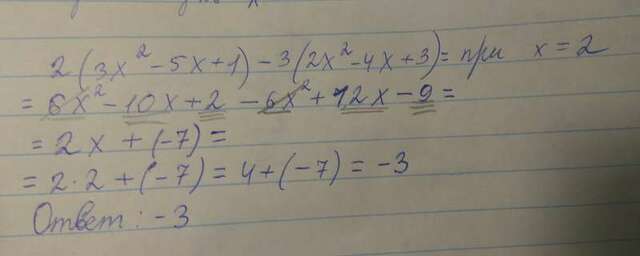 2(3x² - 5x + 1) - 3(2x² - 4x + 3) = при x = 2
= 6x² - 10x + 2 - 6x² + 12x - 9 =
= 2x + (-7) =
= 2·2 + (-7) = 4 + (-7) = -3
Ответ: -3